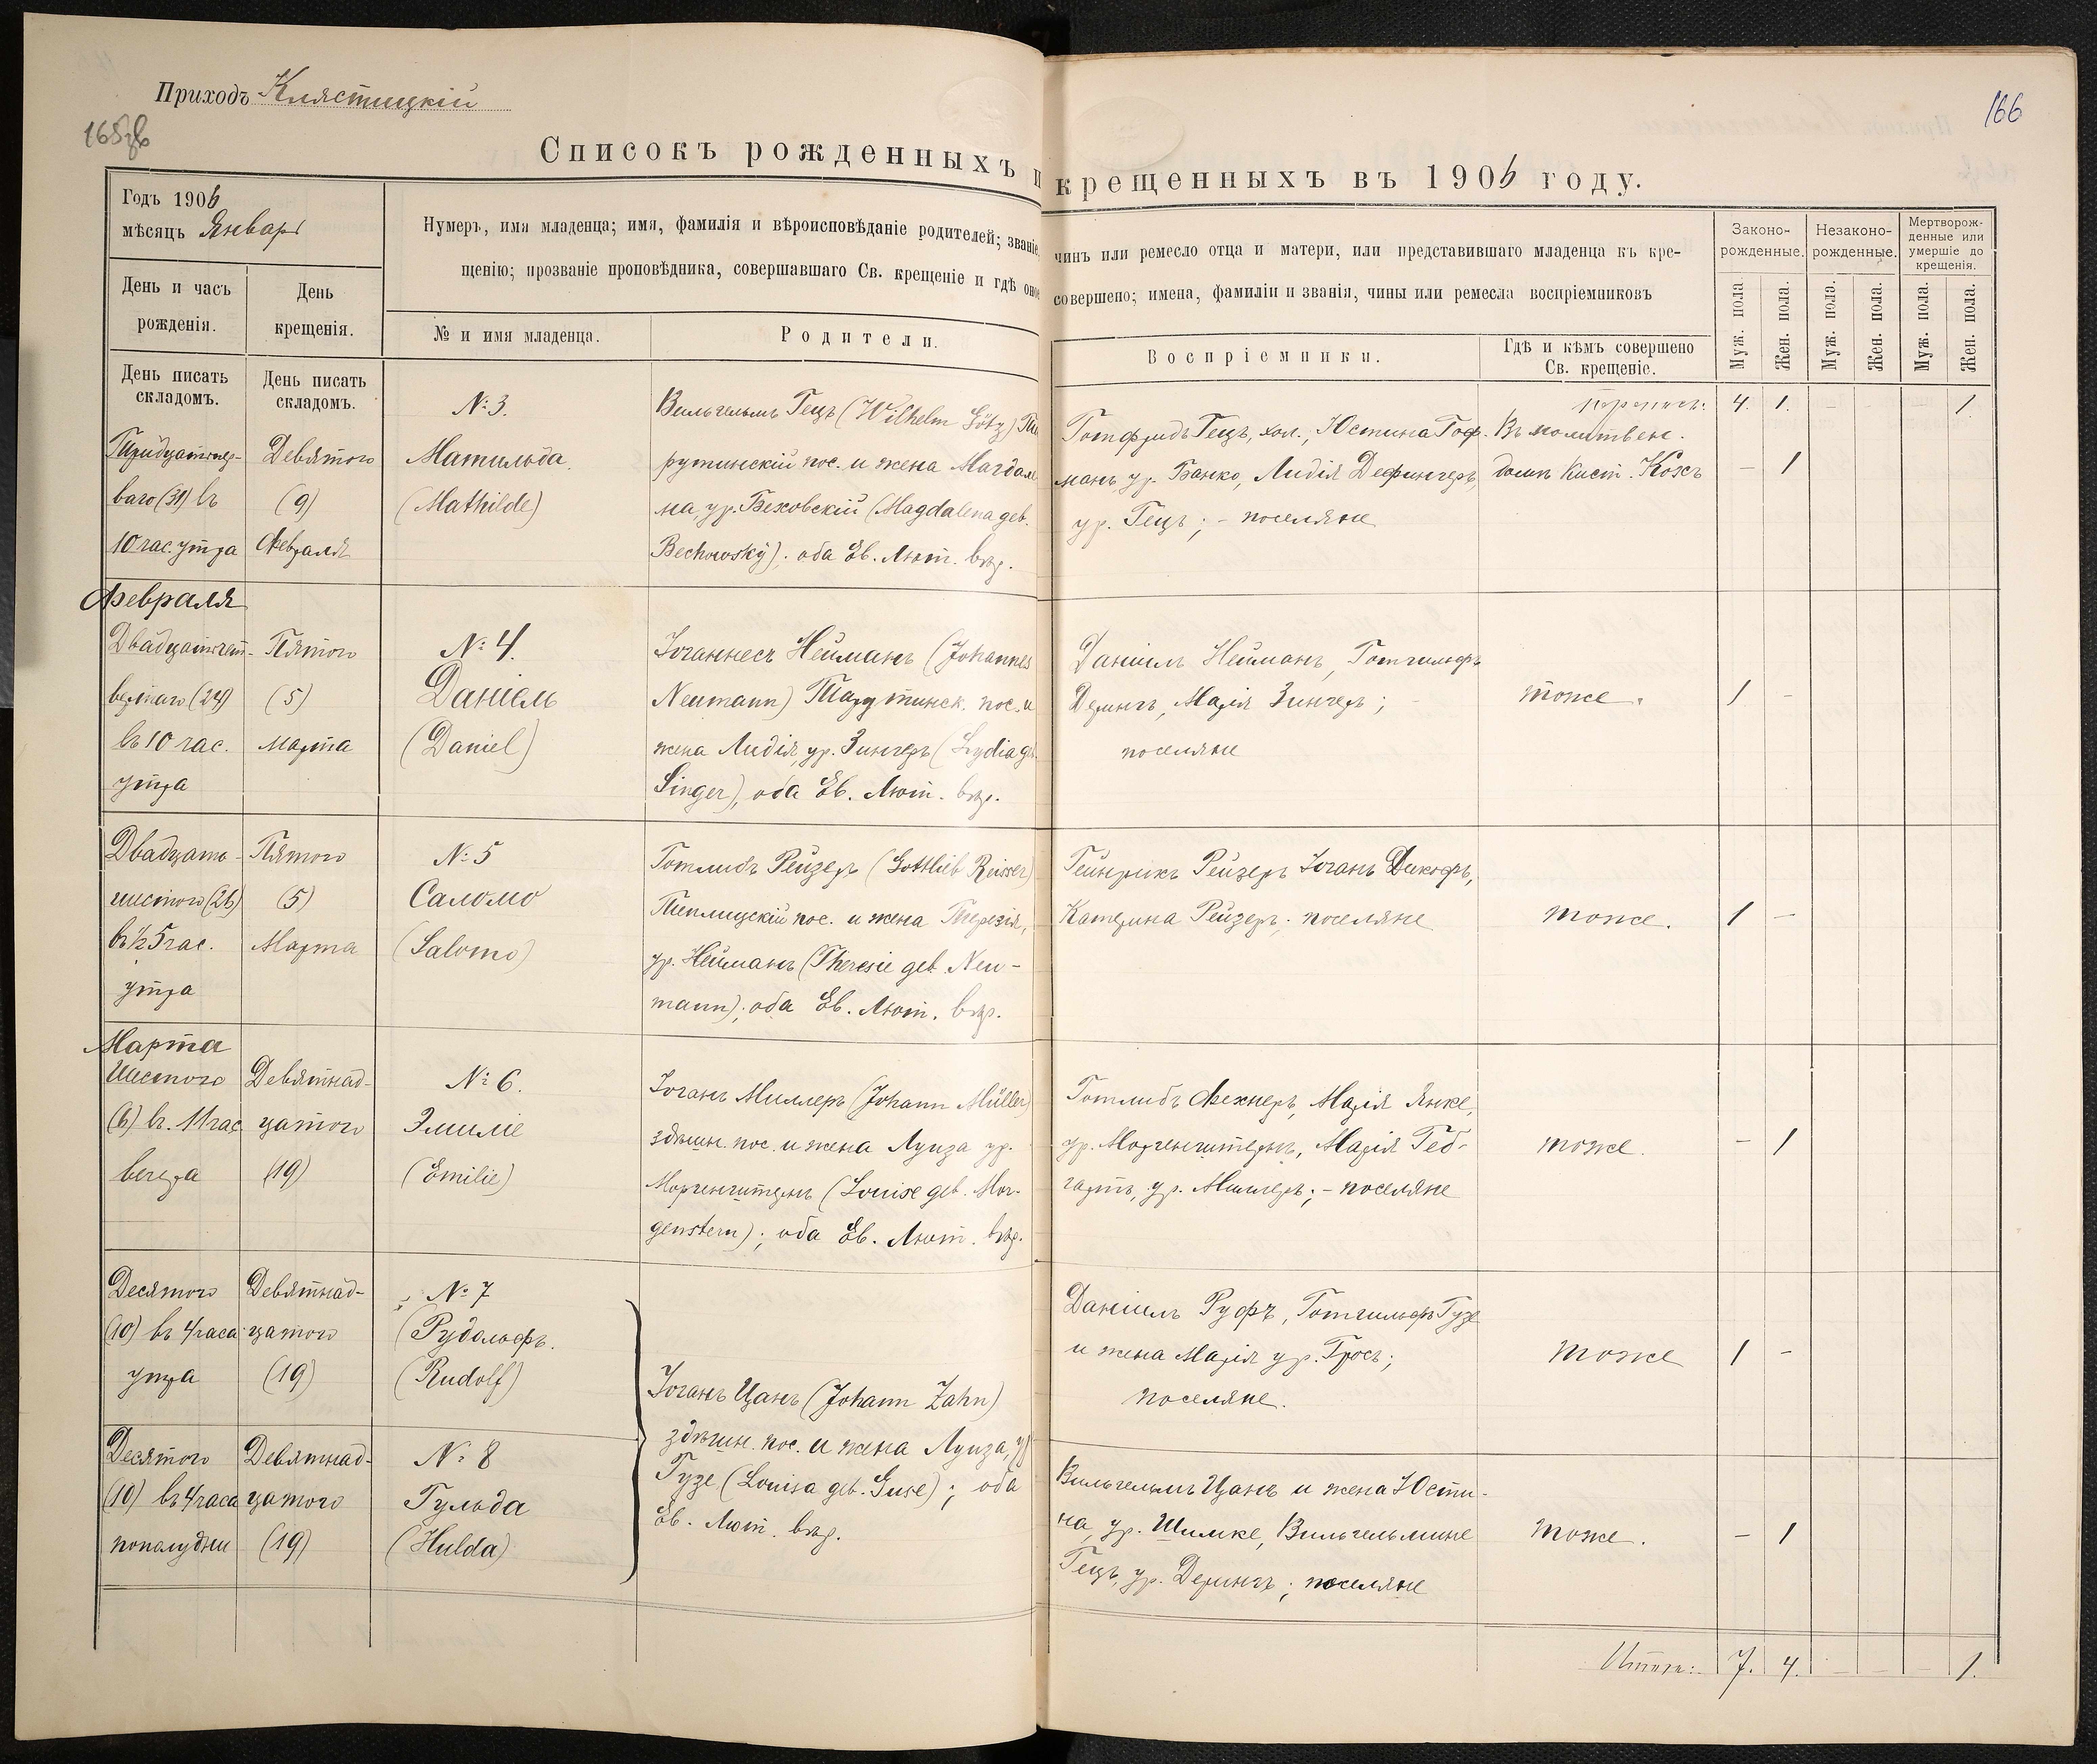 Приходъ Клястицкій
166
Списокъ рожденныхъ и крещенныхъ въ 1906 году.
Годъ 1906
мѣсяцъ Январь
День и часъ
рожденія.
День
крещенія.
Нумеръ, имя младенца; имя, фамилія и вѣроисповѣданіе родителей; званіе,
чинъ или ремесло отца и матери, или представившаго младенца къ кре-
щенію; прозваніе проповѣдника, совершавшаго Св. крещеніе и гдѣ оное
совершено; имена, фамиліи и званія, чины или ремесла воспріемниковъ
№ и имя младенца.
Родители.
Воспріемники.
Гдѣ и кѣмъ совершено
Св. крещеніе.
Законо-
рожденные.
Незаконо-
рожденные.
Мертворож-
денные или
умершіе до
крещенія.
Муж. пола
Жен. пола.
Муж. пола.
Жен. пола.
Муж. пола.
Жен. пола.
День писать
складомъ.
День писать
складомъ.
4. 1. – – – 1.
Тридцатьпер-
ваго (31) въ
10 час. утра
Девятого
(9)
Февраля
№ 3.
Матильда.
(Mathilde)
Вильгельмъ Гецъ (Wilhelm Götz)
рутинскій пос. и жена Магдале
на, ур. Беховскій (Magdalena geb.
Bechowsky); оба Ев. Лют. вѣр.
Готфридъ Гецъ, хол., Юстина Гоф-
манъ, ур. Банко, Лидія Дефингеръ,
ур. Гецъ; – поселяне
Въ молитвен.
домѣ Кист. Кохъ
– 1
Февраля
Двадцатьчет-
вертаго (24)
въ 10 час.
утра
Пятого
(5)
марта
№ 4.
Даніель
(Daniel)
Іоганнесъ Нейманъ (Johannes
Neumann) пос. и
жена Лидія, ур. Зингеръ (Lydia geb.
Singer), оба Ев. Лют. вѣр.
Даніилъ Нейманъ, Готгильфъ
Дерингъ, Марія Зингеръ;
поселяне
тоже.
1 –
Двадцать-
шестого (26)
въ ½ 5 час.
утра
Пятого
(5)
Марта
№ 5
Саломо
(Salomo)
Готлибъ Рейзеръ (Gottlieb Reisser)
Теплицскій пос. и жена Терезія,
ур. Нейманъ (Theresie geb. Neu-
mann); оба Ев. Лют. вѣр.
Гейнрихъ Рейзеръ Іоганъ Дикофъ,
Катерина Рейзеръ; поселяне
тоже.
1 –
Марта
Шестого
(6) въ 11 час.
вечера
Девятнад-
цатого
(19)
№ 6.
Эмиліе
(Emilie)
Іоганъ Миллеръ (Johann Müller)
здѣшн. пос. и жена Луиза ур.
Моргенштернъ (Louise geb. Mor-
genstern); оба Ев. Лют. вѣр.
Готлибъ Фехнеръ, Марія Янке,
ур. Моргенштернъ, Марія Геб-
гартъ, ур. Миллеръ; – поселяне
тоже.
– 1
Десятого
(10) въ 4 часа
утра
Девятнад-
цатого
(19)
№ 7
Рудольфъ.
(Rudolf)
Іоганъ Цанъ (Johann Zahn)
здѣшн. пос. и жена Луиза, ур.
Гузе (Louisa geb. Guse); оба
Ев. Лют. вѣр.
Даніилъ Руфъ, Готгильфъ Гузе
и жена Марія ур. Гросъ;
поселяне.
тоже
1 –
Десятого
(10) въ 4 часа
пополудни
Девятнад-
цатого
(19)
№ 8
Гульда
(Hulda)
Вильгельмъ Цанъ и жена Юсти-
на, ур. Шимке, Вильгельмине
Гецъ, ур. Дерингъ; поселяне
тоже.
– 1
Итого: 7. 4. – – – 1.